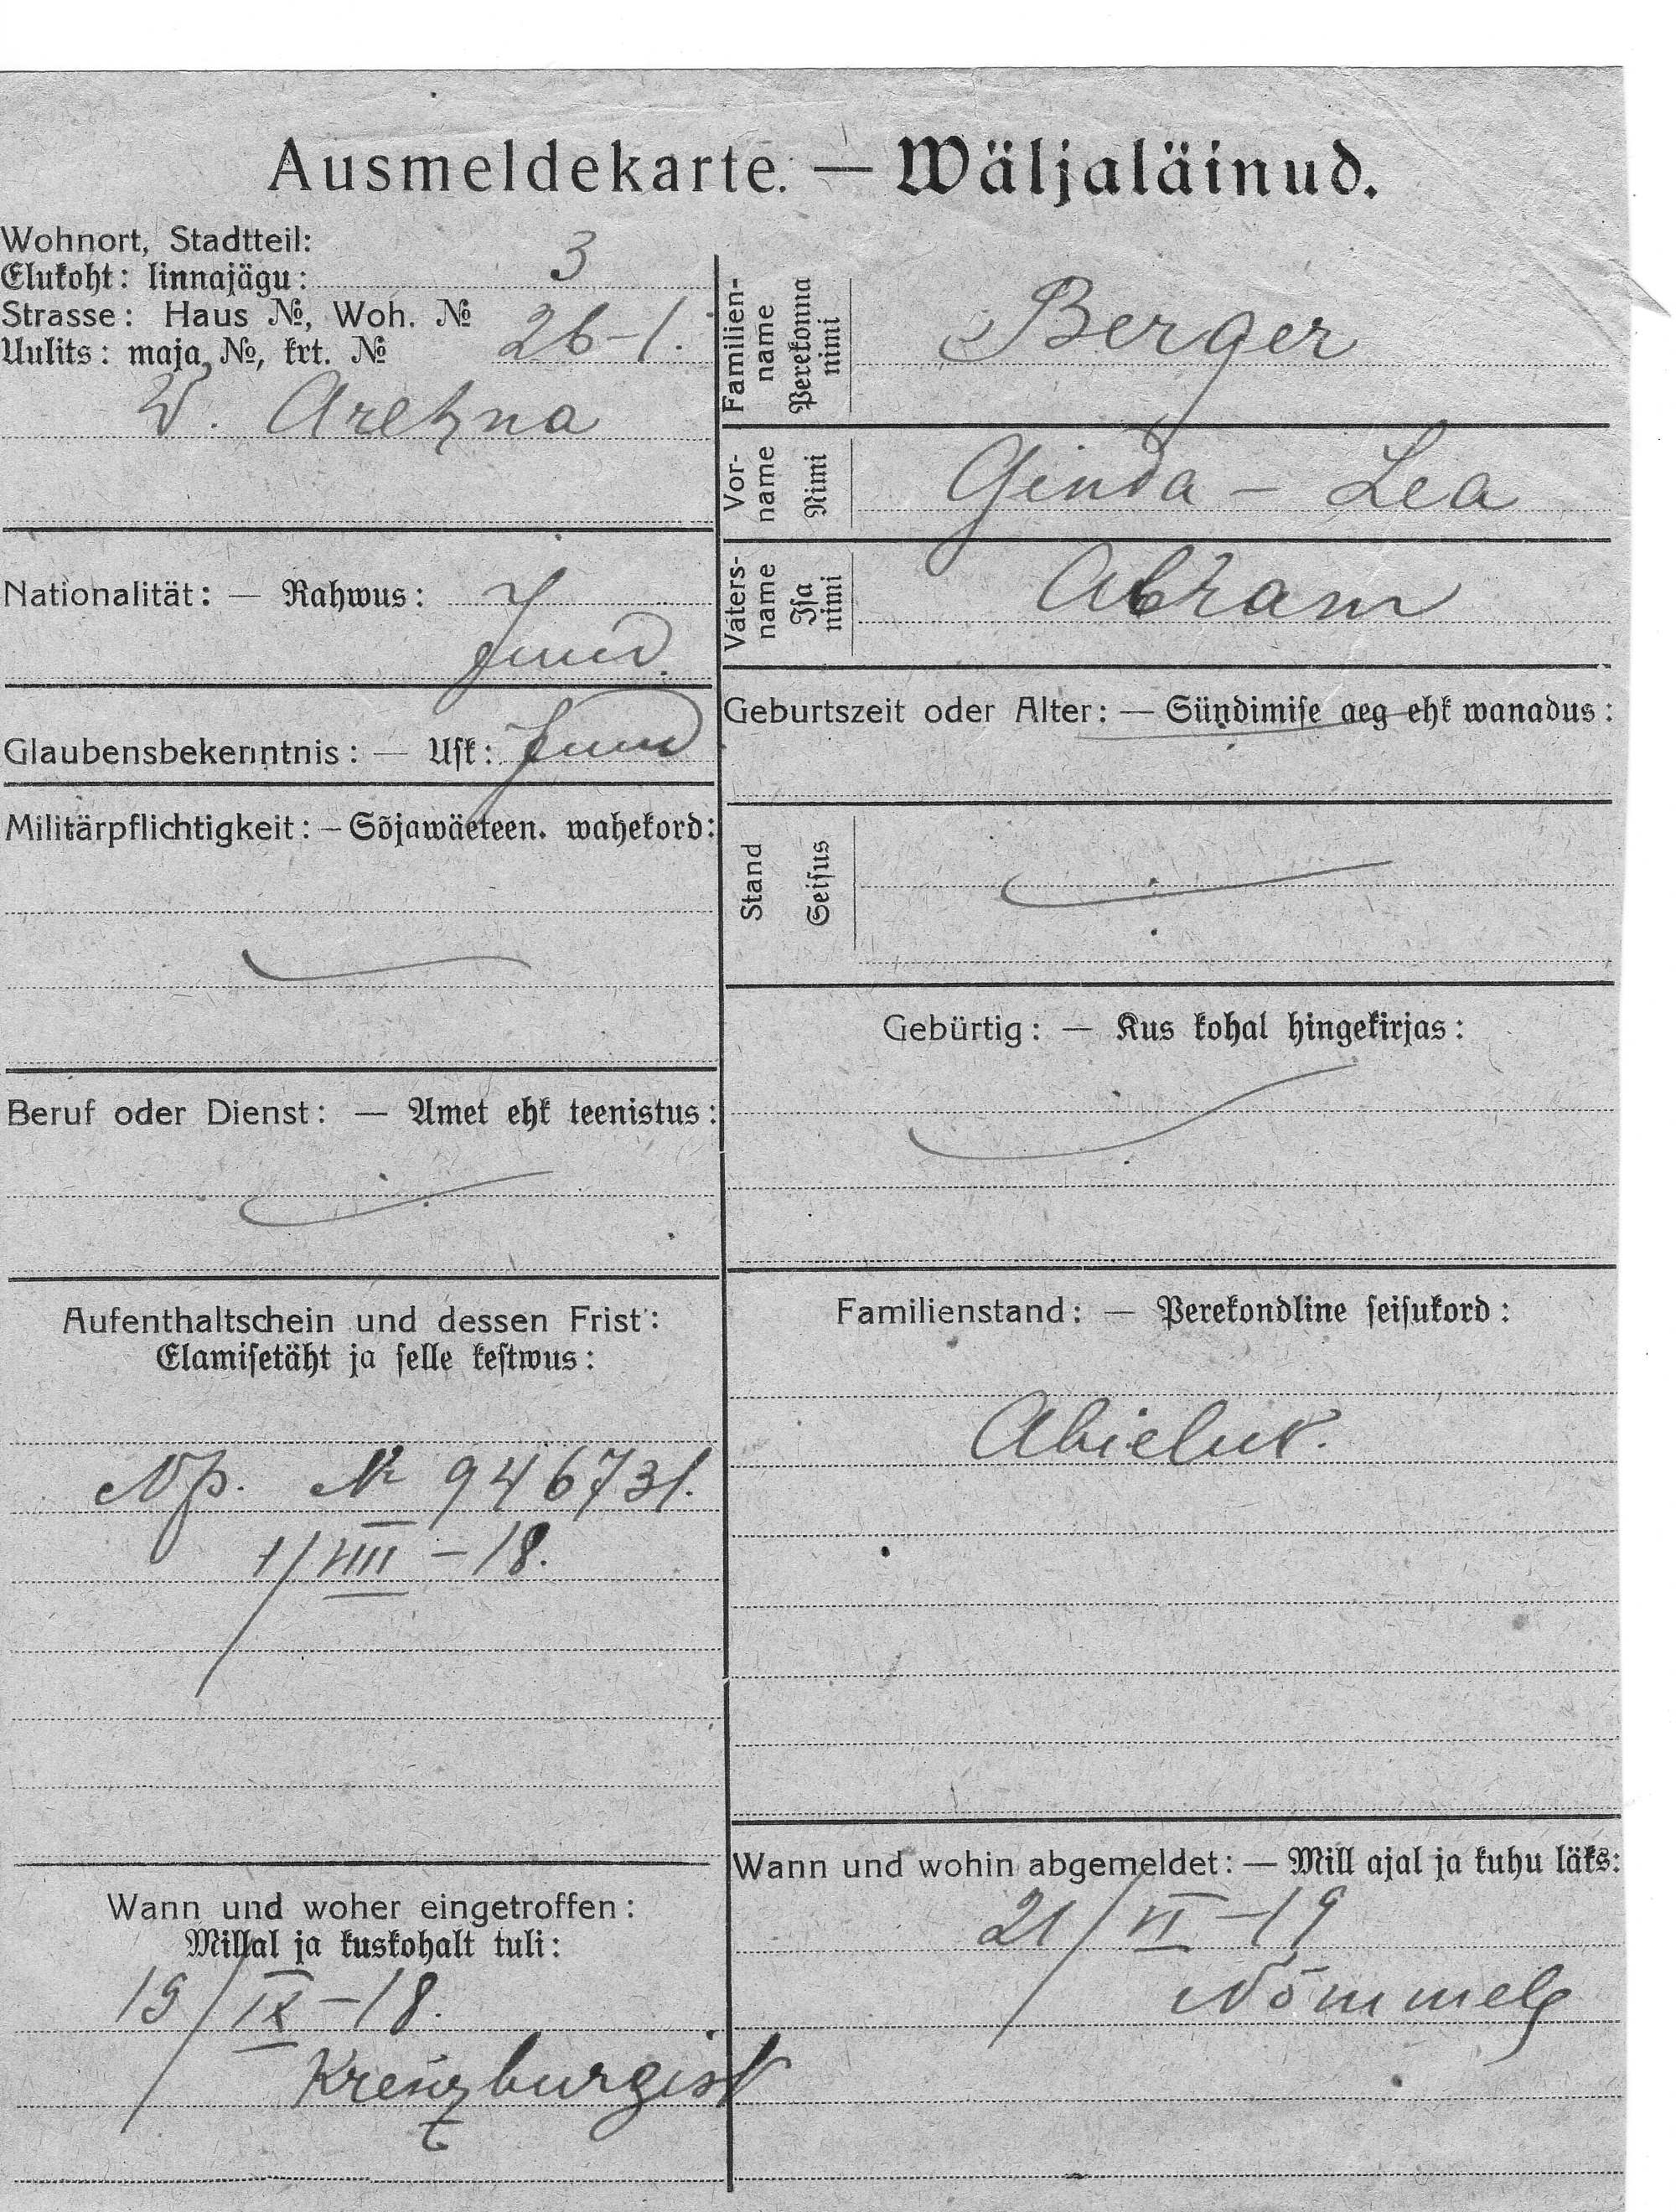 Ausmeldekarte. — Wäljaläinud.
Wohnort, Stadtteil:
Elukoht: linnajägu: 3
Strasse: Haus №, Woh. №
Uulits: maja №, krt. № 26-1.
W. Arehna
Nationalität: — Rahwus:
Juud.
Glaubensbekenntnis: — Usk: Juud
Militärpflichtigkeit: — Sõjawäeteen. wahekord:
Beruf oder Dienst: — Amet ehk teenistus:
Aufenthaltschein und dessen Frist:
Elamisetäht ja selle kestwus:
Np. № 946731.
1/VIII – 18.
Wann und woher eingetroffen:
Millal ja kuskohalt tuli:
19/IX – 18.
Kreuzburgist
Familien-
name
Perekonna
nimi
Berger
Vor-
name
Nimi
Ginda – Lea
Vaters-
name
Isa
nimi
Abram
Geburtszeit oder Alter: — Sündimise aeg ehk wanadus:
Stand
Seisus
Gebürtig: — Kus kohal hingekirjas:
Familienstand: — Perekondline seisukord:
Abielus.
Wann und wohin abgemeldet: — Mill ajal ja kuhu läks:
21/VI – 19
Nõmmele